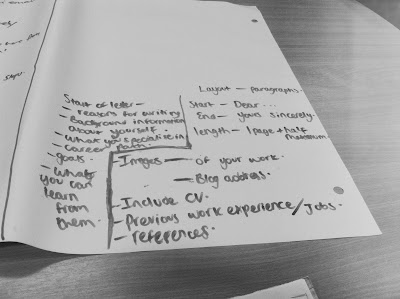 Start of letter –
– reasons for writing
– Background information
about yourself.
– What you specialise in
– Career path.
– goals.
– What
you can
learn
from
them.
Layout – paragraphs.
Start – Dear...
End – yours sincerely.
length – 1 page + half
maximum
– Images – of your work.
– Blog address.
– Include CV.
– Previous work experience/Jobs.
– references.
steps.